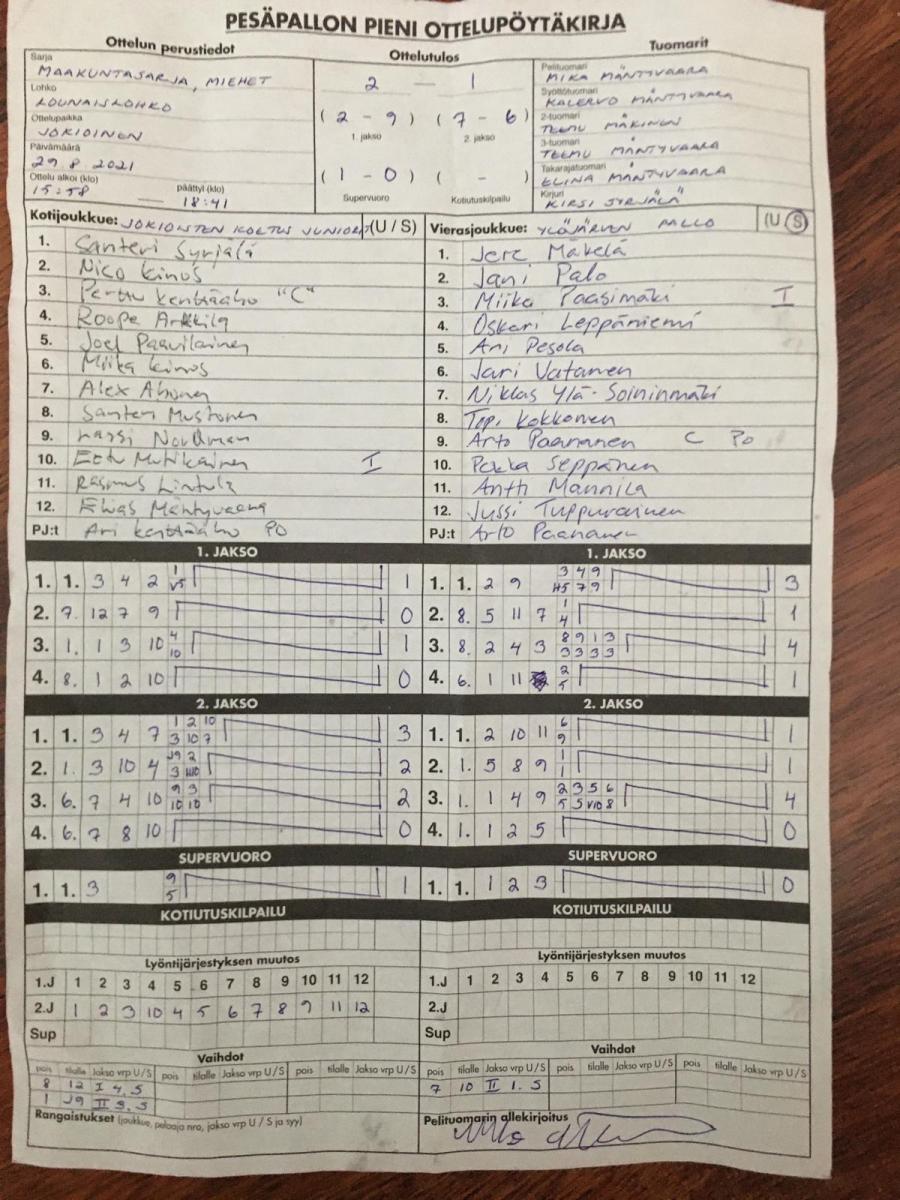 PESÄPALLON PIENI OTTELUPÖYTÄKIRJA
Ottelun perustiedot
Ottelutulos
Tuomarit
Sarja
MAAKUNTASARJA, MIEHET
Lohko
LOUNAISLOHKO
Ottelupaikka
JOKIOINEN
Päivämäärä
29 8 2021
Ottelu alkoi (klo)
15:58
päättyi (klo)
18:41
2 — 1
(2 - 9) (7 - 6)
1. jakso 2. jakso
(1 - 0) ( - )
Supervuoro Kotiutuskilpailu
Pelituomari
MIKA MÄNTYVAARA
Syöttötuomari
KALERVO MÄNTYVAARA
2-tuomari
TEEMU MÄKINEN
3-tuomari
TEEMU MÄNTYVAARA
Takarajatuomari
ELINA MÄNTYVAARA
Kirjuri
KIRSI SYRJÄLÄ
Kotijoukkue: JOKIOISTEN KOETUS JUNIORIT (U / S)
1. Santeri Syrjälä
2. Nico Kinos
3. Perttu Kenttäaho "C"
4. Roope Arkkila
5. Joel Paavilainen
6. Miika Kinos
7. Alex Ahonen
8. Santeri Mustonen
9. Lassi Nordman
10. Eetu Mutikainen I
11. Rasmus Lintula
12. Elias Mäntyvaara
PJ:t Ari Kenttäaho PO
Vierasjoukkue: YLÖJÄRVEN PALLO (U / S)
1. Jere Mäkelä
2. Jani Palo
3. Miika Paasimäki I
4. Oskari Leppäniemi
5. Ari Pesola
6. Jari Vatanen
7. Niklas Ylä-Soininmäki
8. Topi Kokkonen
9. Arto Paananen C PO
10. Pekka Seppänen
11. Antti Mannila
12. Jussi Tuppurainen
PJ:t Arto Paananen
1. JAKSO
1. 1. 3 4 2 1 V5 1
2. 7. 12 7 9 0
3. 1. 1 3 10 4 10 1
4. 8. 1 2 10 0
1. JAKSO
1. 1. 2 9 3 4 9 H5 7 9 3
2. 8. 5 11 7 1 4 1
3. 8. 2 4 3 8 9 1 3 3 3 3 3 4
4. 6. 1 11 2 5 1
2. JAKSO
1. 1. 3 4 7 1 2 10 3 10 7 3
2. 1. 3 10 4 J9 2 3 2
3. 6. 7 4 10 9 3 10 10 2
4. 6. 7 8 10 0
2. JAKSO
1. 1. 2 10 11 6 9 1
2. 1. 5 8 9 1 1 1
3. 1. 1 4 9 2 3 5 6 5 5 V10 8 4
4. 1. 1 2 5 0
SUPERVUORO
1. 1. 3 9 5 1
SUPERVUORO
1. 1. 1 2 3 0
KOTIUTUSKILPAILU
KOTIUTUSKILPAILU
Lyöntijärjestyksen muutos
1.J 1 2 3 4 5 6 7 8 9 10 11 12
2.J 1 2 3 10 4 5 6 7 8 9 11 12
Sup
Lyöntijärjestyksen muutos
1.J 1 2 3 4 5 6 7 8 9 10 11 12
2.J
Sup
Vaihdot
pois tilalle Jakso vrp U / S pois tilalle Jakso vrp U / S pois tilalle Jakso vrp U / S
8 12 I 4, S
1 J9 II 3, S
Rangaistukset (joukkue, pelaaja nro, jakso vrp U / S ja syy)
Vaihdot
pois tilalle Jakso vrp U / S pois tilalle Jakso vrp U / S pois tilalle Jakso vrp U / S
7 10 II 1. S
Pelituomarin allekirjoitus